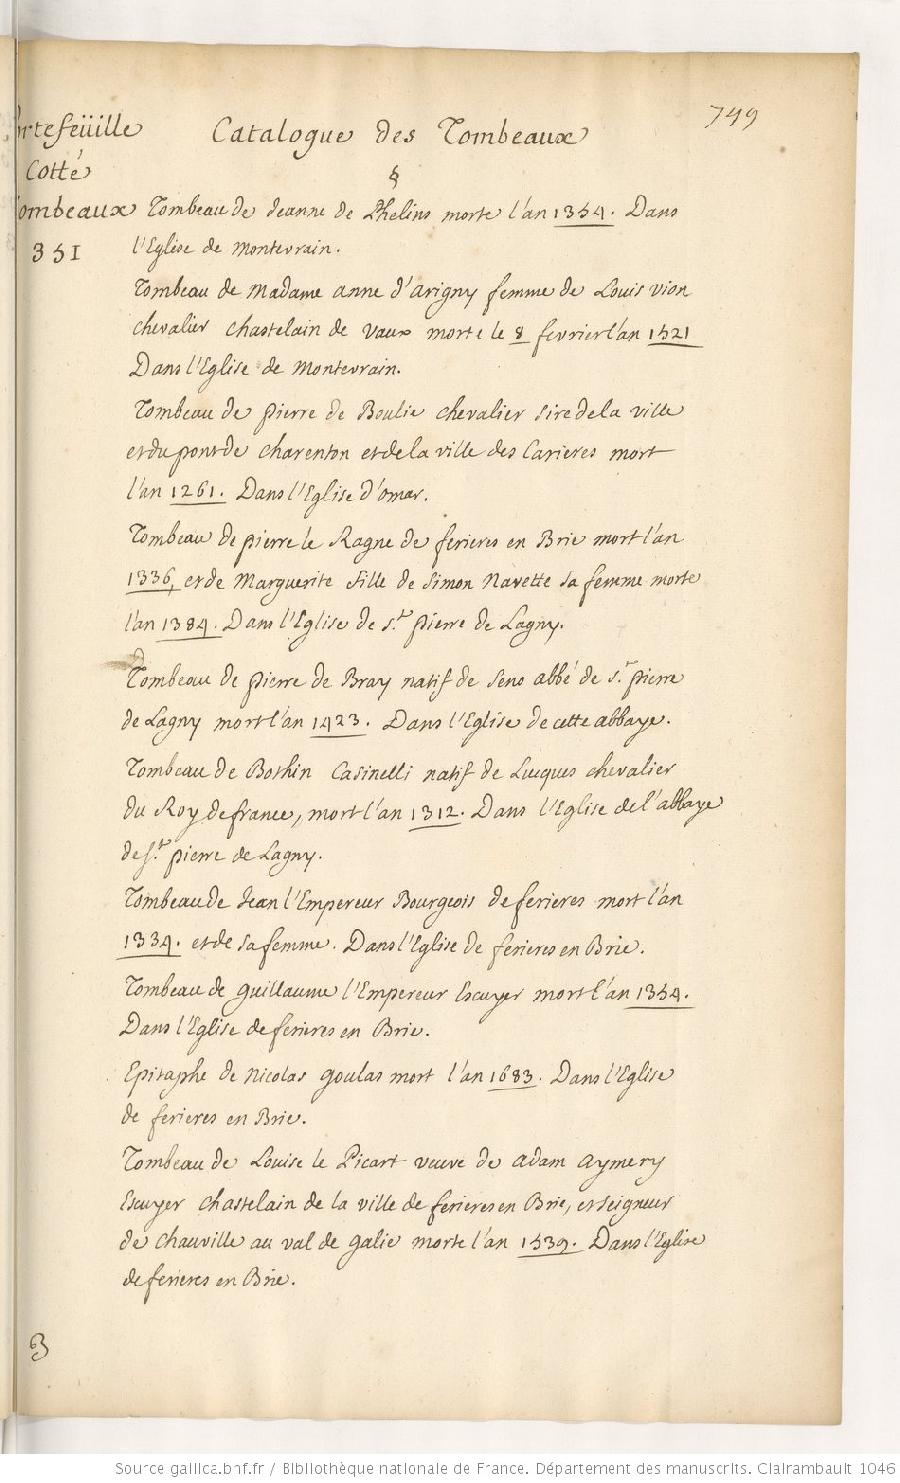 749
Catalogue des Tombeaux
rtefeüille
Cotté
ombeaux
351
§
Tombeau de Jeanne de Phelins morte l'an 1354. Dans
l'Eglise de Montevrain.
Tombeau de Madame anne d'arigny femme de Louis vion
chevalier chastelain de vaux morte le 8 fevrier l'an 1521
Dans l'Eglise de Montevrain.
Tombeau de pierre de Boulie chevalier sire de la ville
et du pont de charenton et de la ville des Carieres mort
l'an 1261. Dans l'Eglise d'omar.
Tombeau de pierre le Ragne de ferieres en Brie mort l'an
1336, et de Marguerite fille de Simon Navette sa femme morte
l'an 1384. Dans l'Eglise de st. pierre de Lagny.
Tombeau de pierre de Bray natif de Sens abbé de st. pierre
de Lagny mort l'an 1423. Dans l'Eglise de cette abbaye.
Tombeau de Bothin Casinelli natif de Lucques chevalier
du Roy de france, mort l'an 1312. Dans l'Eglise de l'abbaye
de st. pierre de Lagny.
Tombeau de Jean l'Empereur Bourgeois de ferieres mort l'an
1334. et de sa femme. Dans l'Eglise de ferieres en Brie.
Tombeau de guillaume l'Empereur Escuyer mort l'an 1354.
Dans l'Eglise de ferieres en Brie.
Epitaphe de Nicolas goulas mort l'an 1683. Dans l'Eglise
de ferieres en Brie.
Tombeau de Louise le Picart veuve de adam aymery
Escuyer chastelain de la ville de ferieres en Brie, et seigneur
de chauville au val de galie morte l'an 1539. Dans l'Eglise
de ferieres en Brie.
B
Source gallica.bnf.fr / Bibliothèque nationale de France. Département des manuscrits. Clairambault 1046